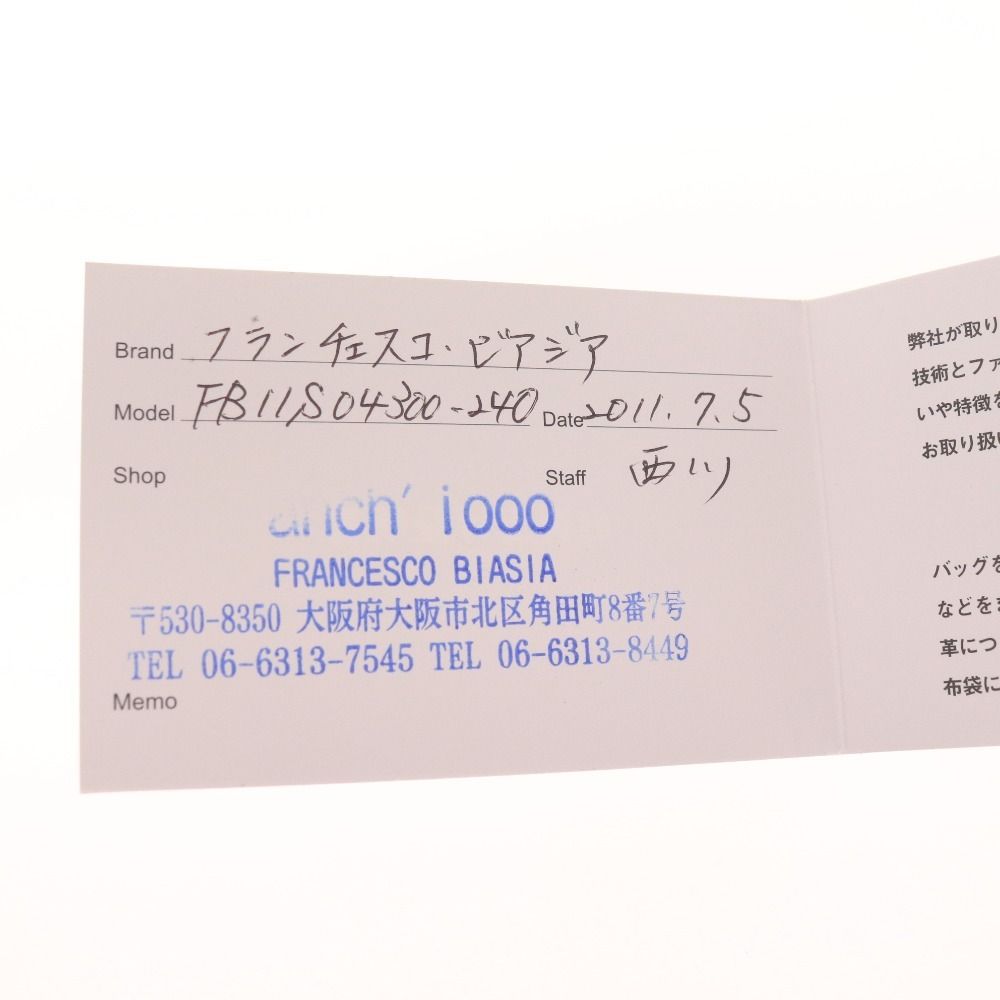 Brand フランチェスコ・ビアジア
Model FB11S04300-240 Date 2011.7.5
Shop Staff 西川
anch' iooo
FRANCESCO BIASIA
〒530-8350 大阪府大阪市北区角田町8番7号
TEL 06-6313-7545 TEL 06-6313-8449
Memo
弊社が取り
技術とファ
いや特徴を
お取り扱い
バッグを
などをま
革につ
布袋に